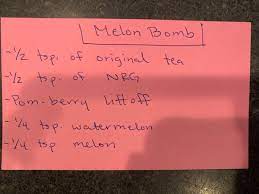 Melon Bomb
-1/2 tsp. of original tea
-1/2 tsp. of NRG
-Pom-berry liftoff
-1/4 tsp. watermelon
-1/4 tsp melon